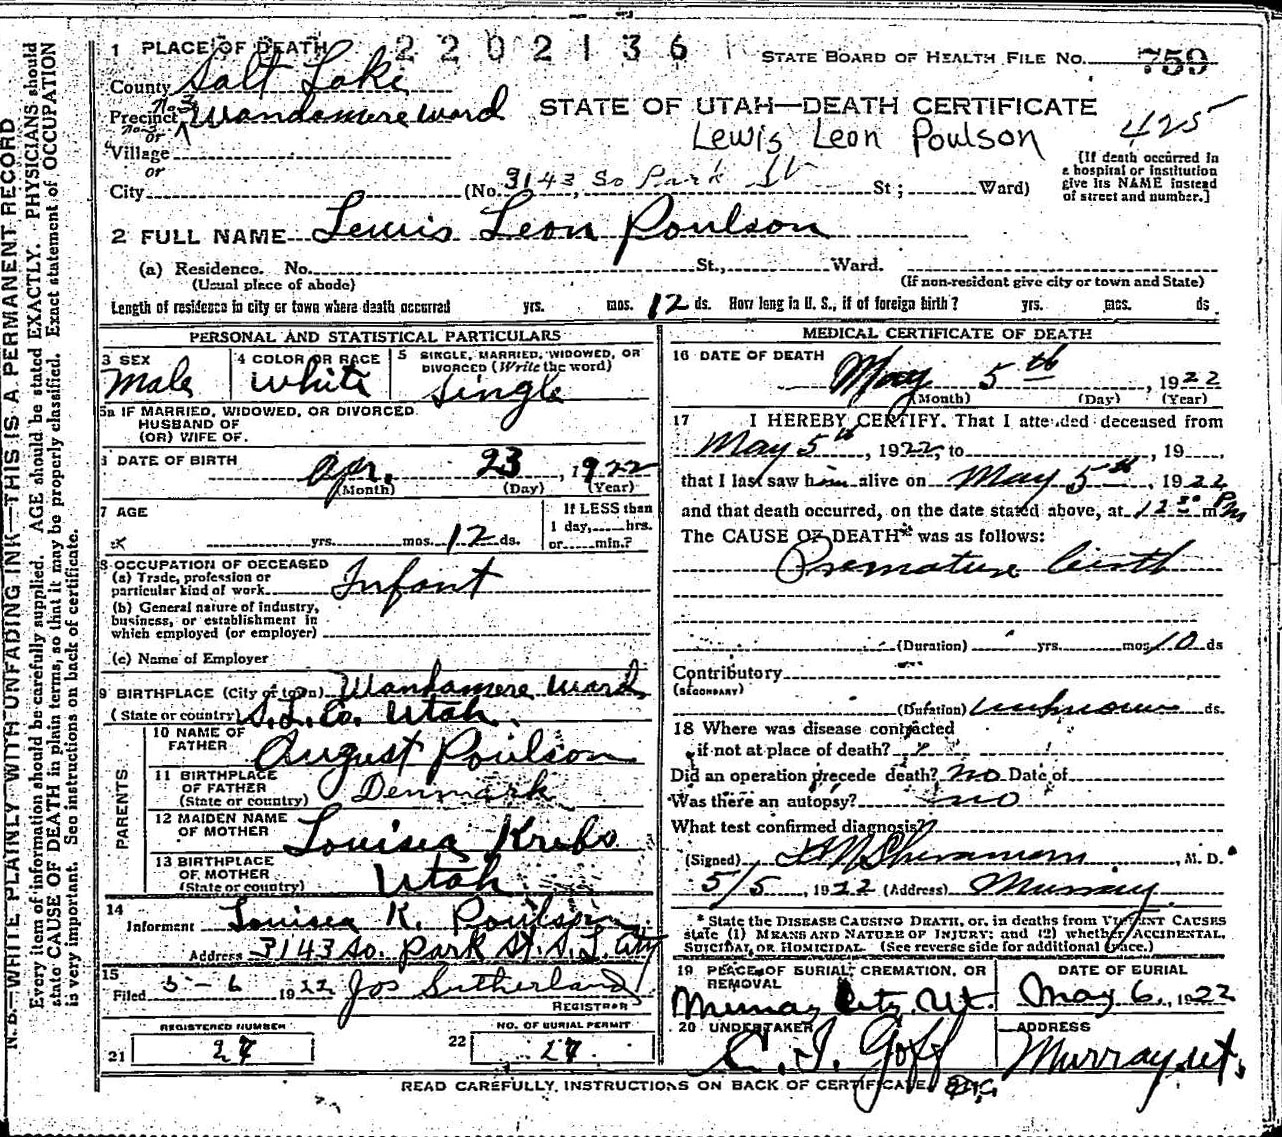 1 PLACE OF DEATH
2202136
STATE BOARD OF HEALTH FILE NO. 759
County Salt Lake
Precinct No. 3 Wandamere Ward
STATE OF UTAH—DEATH CERTIFICATE
Lewis Leon Poulson
425
or
Village
or
City (No. 3143 So Park St St; Ward)
[If death occurred in a hospital or institution give its NAME instead of street and number.]
2 FULL NAME Lewis Leon Poulson
(a) Residence. No. St., Ward.
(Usual place of abode) (If non-resident give city or town and State)
Length of residence in city or town where death occurred yrs. mos. 12 ds. How long in U. S., if of foreign birth? yrs. mos. ds
PERSONAL AND STATISTICAL PARTICULARS
3 SEX
Male
4 COLOR OR RACE
White
5 SINGLE, MARRIED, WIDOWED, OR DIVORCED (Write the word)
Single
5a IF MARRIED, WIDOWED, OR DIVORCED
HUSBAND OF
(OR) WIFE OF.
DATE OF BIRTH
Apr. 23, 1922
(Month) (Day) (Year)
7 AGE
yrs. mos. 12 ds.
If LESS than
1 day, hrs.
or min.?
8 OCCUPATION OF DECEASED
(a) Trade, profession or
particular kind of work Infant
(b) General nature of industry,
business, or establishment in
which employed (or employer)
(c) Name of Employer
9 BIRTHPLACE (City or town) Wandamere Ward
(State or country) S.L. Co. Utah.
PARENTS
10 NAME OF
FATHER August Poulson
11 BIRTHPLACE
OF FATHER
(State or country) Denmark
12 MAIDEN NAME
OF MOTHER Louisea Krebs
13 BIRTHPLACE
OF MOTHER
(State or country) Utah
14
Informent Louisea K. Poulson
Address 3143 So. Park St. S. L. City
15
Filed 5-6 1922 Jos Sutherland
REGISTRAR
REGISTERED NUMBER
21 27
NO. OF BURIAL PERMIT
22 27
MEDICAL CERTIFICATE OF DEATH
16 DATE OF DEATH
May 5th, 1922
(Month) (Day) (Year)
17 I HEREBY CERTIFY. That I attended deceased from
May 5th, 1922, to , 19
that I last saw him alive on May 5th, 1922
and that death occurred, on the date stated above, at 12 30 m Pm
The CAUSE OF DEATH* was as follows:
Premature birth
(Duration) yrs. mos 10 ds
Contributory
(SECONDARY)
(Duration) unknown ds.
18 Where was disease contracted
if not at place of death? ?
Did an operation precede death? no Date of
Was there an autopsy? no
What test confirmed diagnosis?
(Signed) M. D.
5/5, 1922 (Address) Murray
* State the DISEASE CAUSING DEATH, or, in deaths from VIOLENT CAUSES
state (1) MEANS AND NATURE OF INJURY; and (2) whether ACCIDENTAL,
SUICIDAL, OR HOMICIDAL. (See reverse side for additional space.)
19 PLACE OF BURIAL, CREMATION, OR
REMOVAL
Murray City, Ut.
DATE OF BURIAL
May 6, 1922
20 UNDERTAKER
C. J. Goff
ADDRESS
Murray, Ut.
READ CAREFULLY, INSTRUCTIONS ON BACK OF CERTIFICATE
N. B.—WRITE PLAINLY WITH UNFADING INK—THIS IS A PERMANENT RECORD
Every item of information should be carefully supplied. AGE should be stated EXACTLY. PHYSICIANS should
state CAUSE OF DEATH in plain terms, so that it may be properly classified. Exact statement of OCCUPATION
is very important. See instructions on back of certificate.